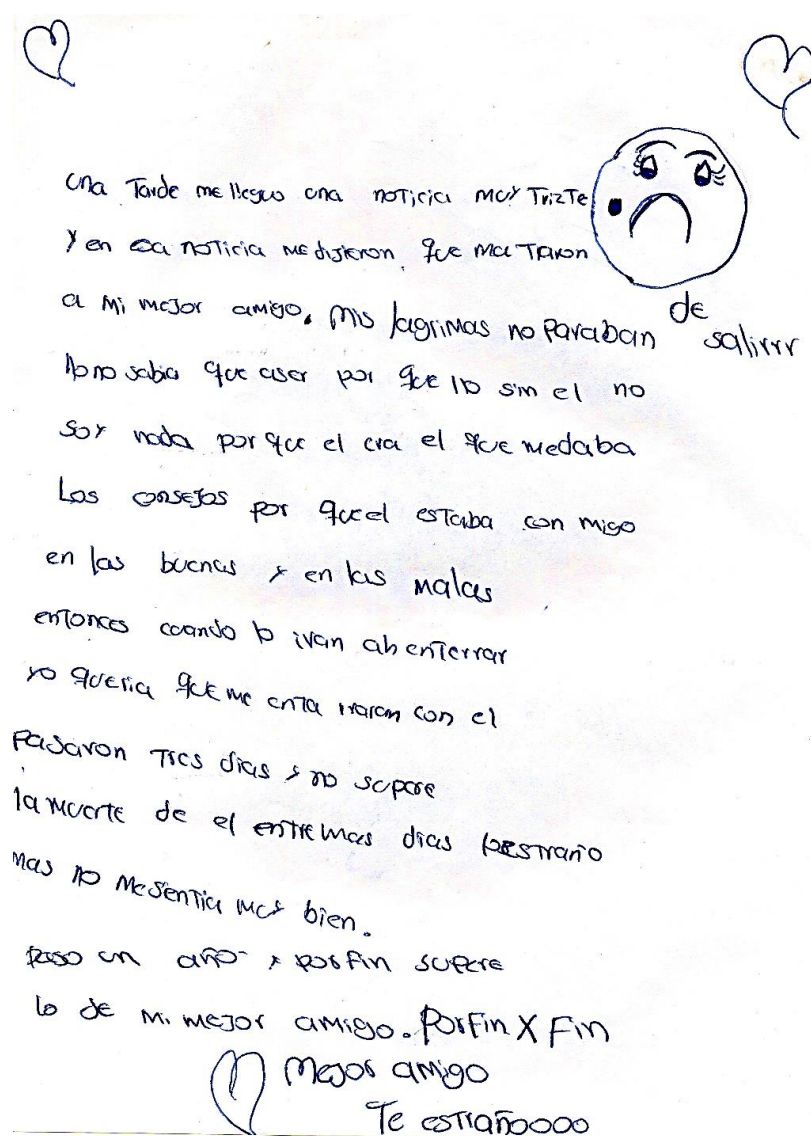 una Tarde me llegus una noticia muy TrizTe
y en esa noticia me dijieron que maTaron
a mi mejor amigo. Mis lagrimas no paraban de salirrr
Yo no sabia que aser por que yo sin el no
soy nada por que el era el que medaba
Los consejos por quel esTaba con migo
en las buenas y en las malas
entonces cuando lo ivan ab enTerrar
yo queria que me enTa rraran con el
Pasaron Tres dias y no supere
la muerte de el entre mas dias loestraño
mas no mesentia muy bien.
Paso un año y porfin supere
lo de mi mejor amigo. PorFin X Fin
Mejor amigo
Te estrañoooo